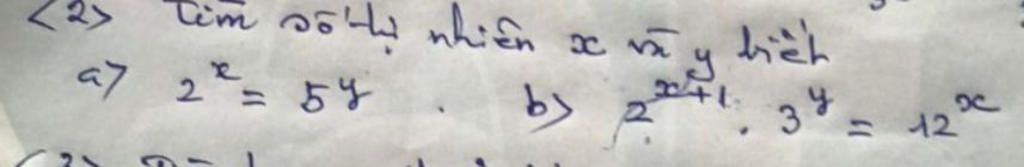 <2> Tìm số tự nhiên x và y biết
a> 2^x = 5^y . b> 2^{x+1} . 3^y = 12^x